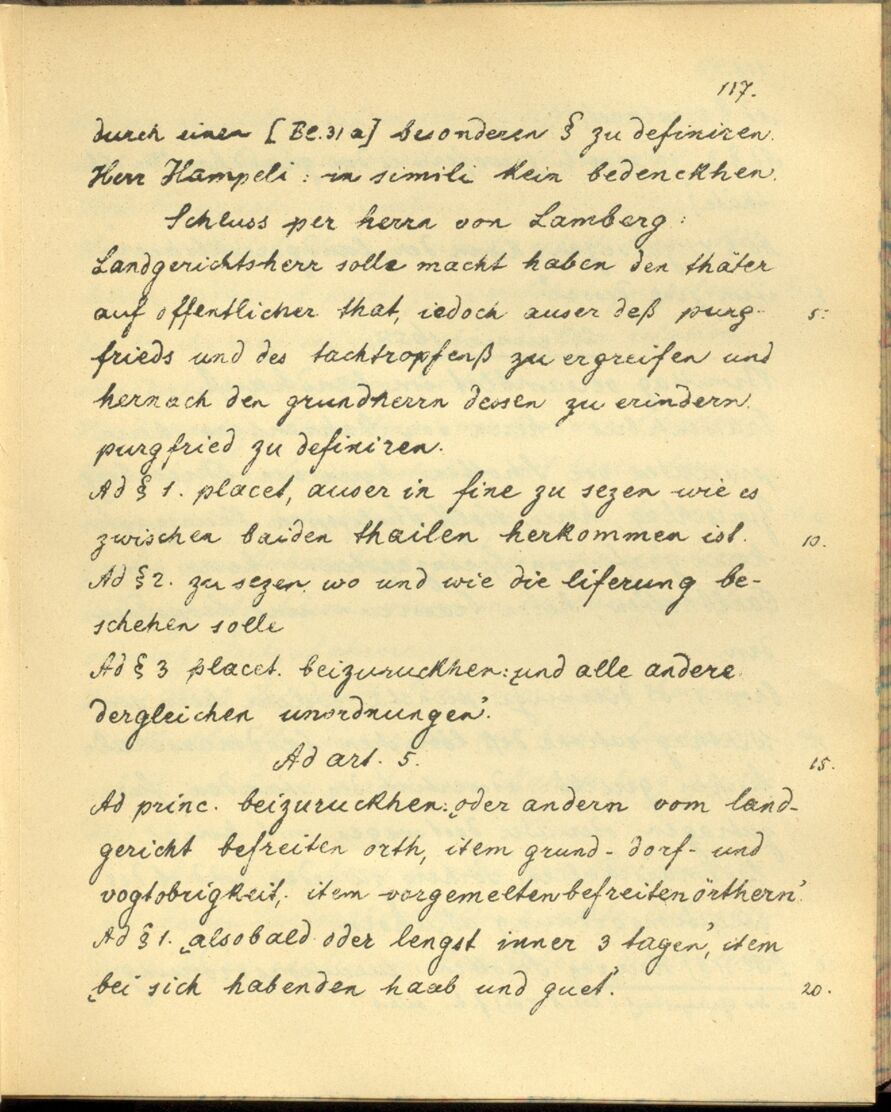 117.
durch einen [Bl. 31a] besonderen § zu definiren.
Herr Hampeli: in simili kein bedenckhen.
Schluss per herrn von Lamberg:
Landgerichtsherr solle macht haben den thäter
auf offentlicher that, iedoch auser deß purg- 5.
frieds und des tachtropfenß zu ergreifen und
hernach den grundherrn dessen zu erindern.
purgfried zu definiren.
Ad § 1. placet, auser in fine zu sezen wie es
zwischen baiden thailen herkommen ist. 10.
Ad § 2. zu sezen, wo und wie die liferung be-
schehen solle
Ad § 3 placet. beizuruckhen: „und alle andere
dergleichen unordnungen“.
Ad art. 5. 15.
Ad princ. beizuruckhen: „oder andern vom land-
gericht befreiten orth, item grund- dorf- und
vogtobrigkeit, item vorgemelten befreiten örthern“.
Ad § 1. „alsobald oder lengst inner 3 tagen“, item
„bei sich habenden haab und guet“. 20.